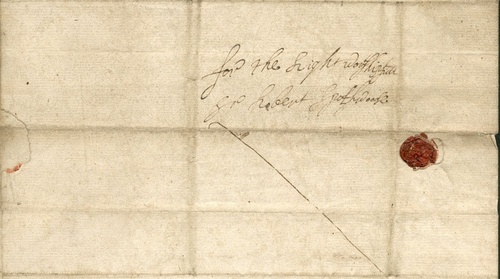 for the Right worshipfull
Sr Robert Spotswood